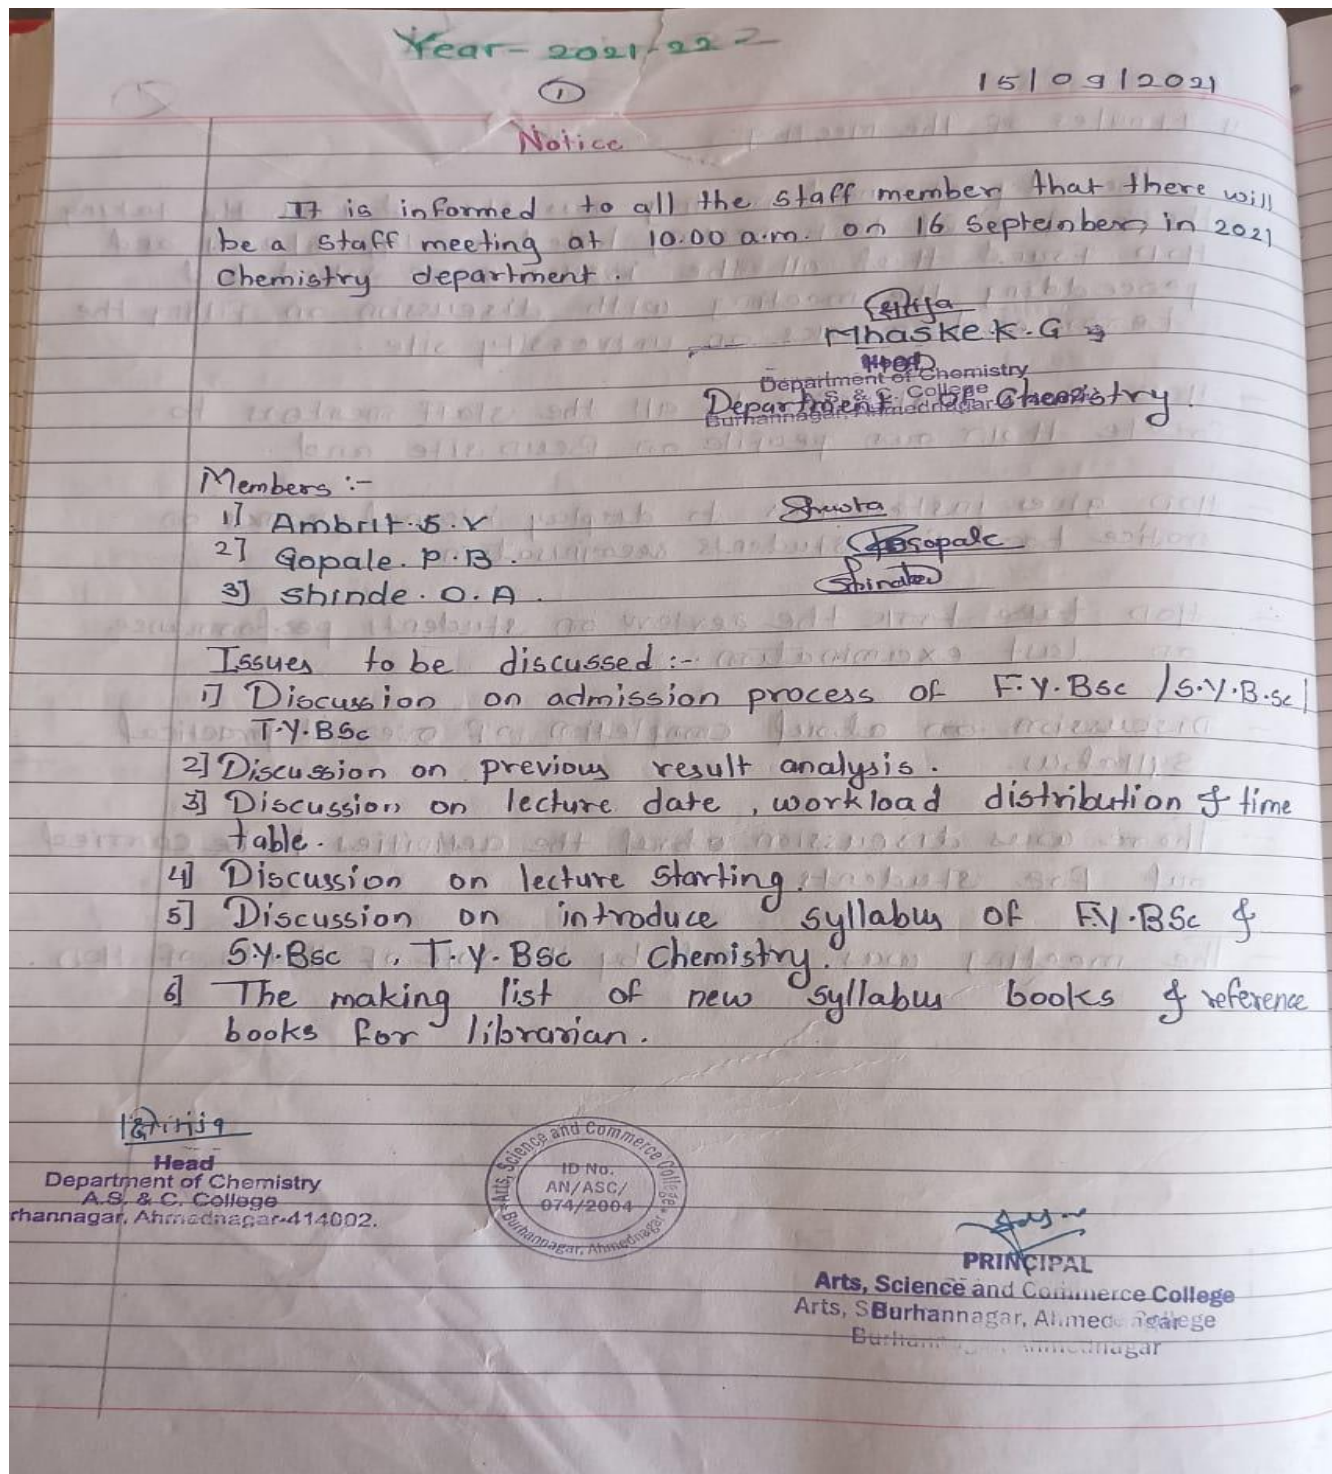 Year - 2021-22
1
15/09/2021
Notice
It is informed to all the staff member that there will
be a staff meeting at 10.00 a.m. on 16 September in 2021
Chemistry department.
Mhaske K. G
Head
Department of Chemistry
A.S. & C. College
Department of Chemistry.
Burhannagar, Ahmednagar
Members :-
1] Ambrit. S. V
2] Gopale. P. B.
3] Shinde. O. A.
Issues to be discussed :-
1] Discussion on admission process of F.Y.BSc /S.Y.B.Sc/
T.Y.BSc
2] Discussion on previous result analysis.
3] Discussion on lecture date, workload distribution & time
table.
4] Discussion on lecture starting.
5] Discussion on introduce syllabus of F.Y.BSc &
S.Y.BSc, T.Y.BSc Chemistry.
6] The making list of new syllabus books & reference
books for librarian.
Head
Department of Chemistry
A.S. & C. College
rhannagar, Ahmednagar-414002.
Arts, Science and Commerce College
ID No.
AN/ASC/
074/2004
Burhannagar, Ahmednagar
PRINCIPAL
Arts, Science and Commerce College
Burhannagar, Ahmednagar